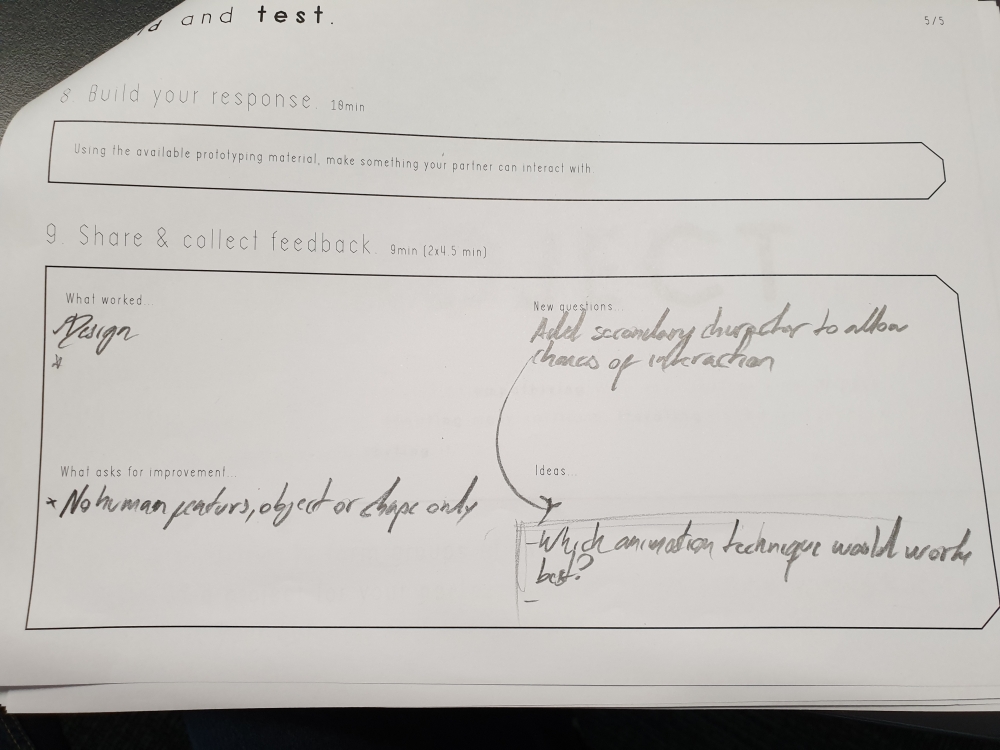 d and test.
5/5
8. Build your response. 10min
Using the available prototyping material, make something your partner can interact with
9. Share & collect feedback. 9min (2x4.5 min)
What worked...
Design
*
New questions...
Add secondary character to allow
chances of interaction
What asks for improvement...
* No human featurs, object or shape only
Ideas...
- Which animation technique would work
best?
-